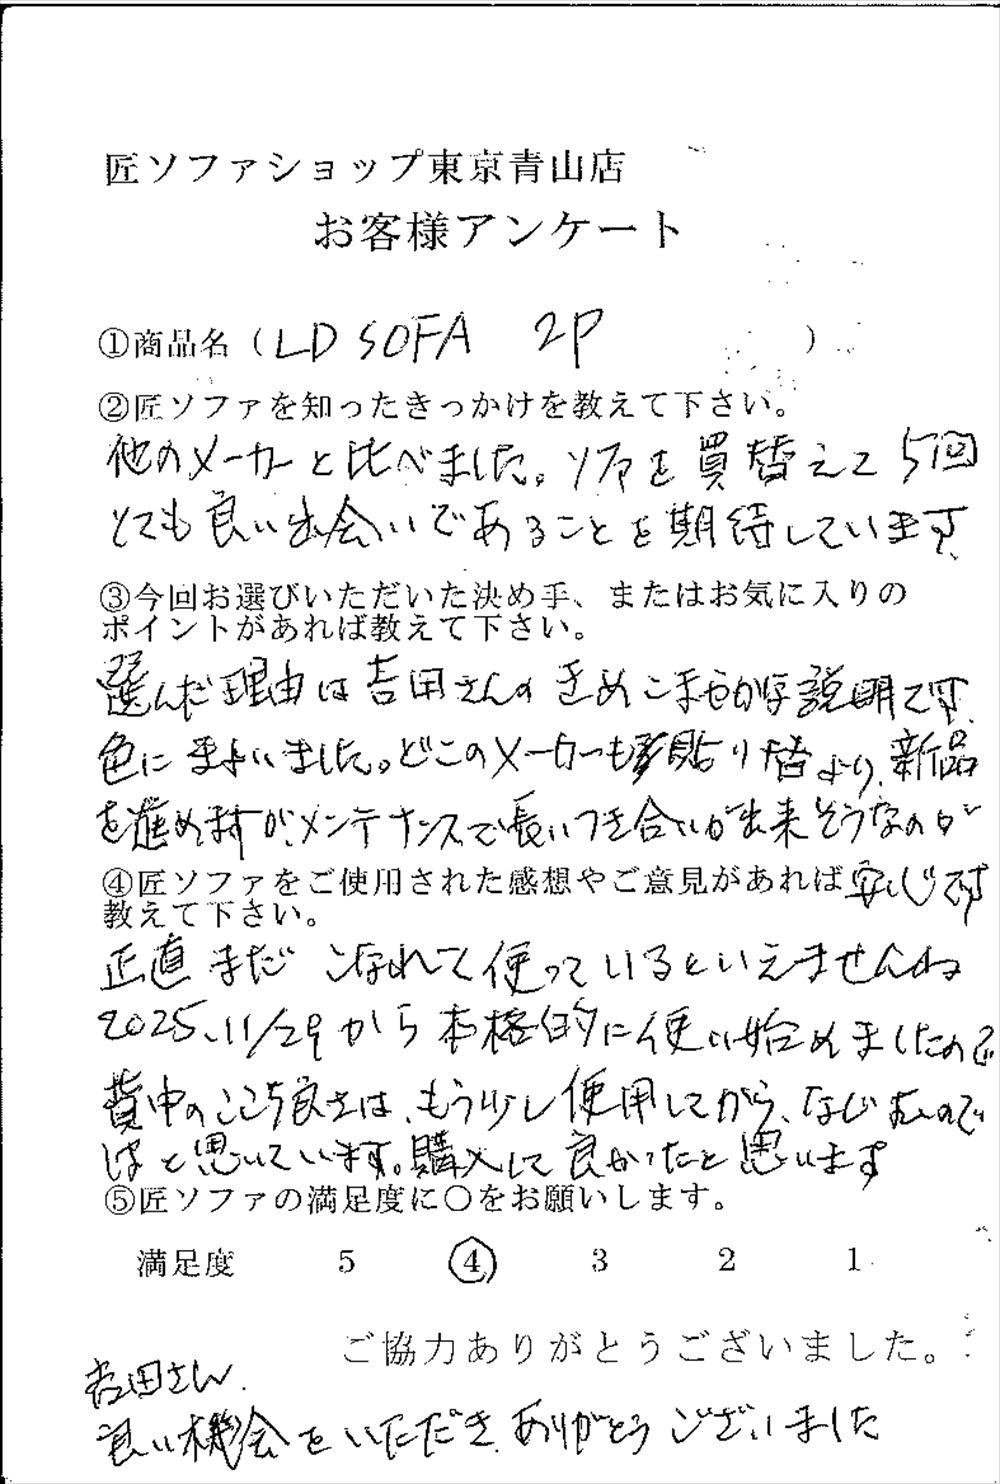 匠ソファショップ東京青山店
お客様アンケート
①商品名（LD SOFA 2P）
②匠ソファを知ったきっかけを教えて下さい。
他のメーカーと比べました。ソファを買替えて5回
とても良い出会いであることを期待しています
③今回お選びいただいた決め手、またはお気に入りの
ポイントがあれば教えて下さい。
選んだ理由は吉田さんのきめこまやかな説明です
色にまよいました。どこのメーカーも貼り替より、新品
を進めますが、メンテナンスで長いつき合いが出来そうなのが
④匠ソファをご使用された感想やご意見があれば 安心です
教えて下さい。
正直まだこなれて使っているといえませんね
2025、11/29から本格的に使い始めましたので
背中のここち良さは、もう少し使用してから、なじむので
はと思いています。購入して良かったと思います
⑤匠ソファの満足度に〇をお願いします。
満足度 5 4 3 2 1
ご協力ありがとうございました。
吉田さん
良い機会をいただき、ありがとうございました